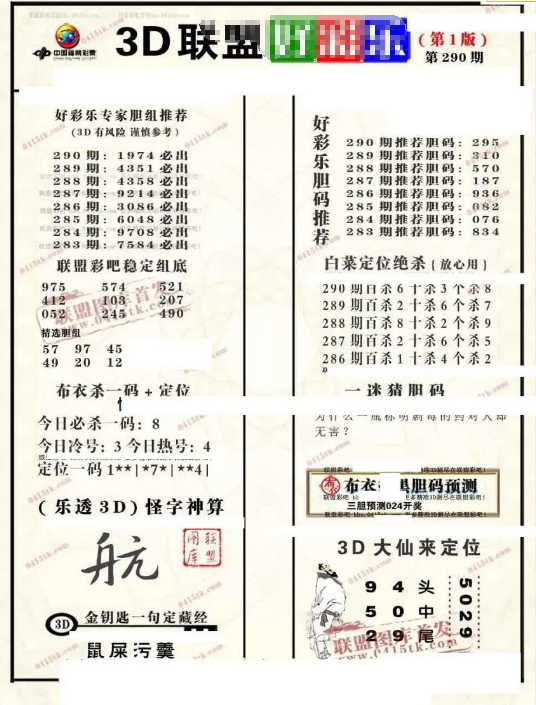 中国福利彩票
3D联盟好彩乐
(第1版)
第290期
好彩乐专家胆组推荐
(3D有风险 谨慎参考)
290期: 1974必出
289期: 4351必出
288期: 4358必出
287期: 9214必出
286期: 3086必出
285期: 6048必出
284期: 9708必出
283期: 7584必出
联盟彩吧稳定组底
975 574 521
412 103 207
052 245 490
精选胆组
57 97 45
49 20 12
布衣杀一码+定位
今日必杀一码: 8
今日冷号: 3 今日热号: 4
定位一码1**|*7*|**4|
(乐透3D)怪字神算
联盟图库
3D 金钥匙一句定藏经
鼠屎污羹
好彩乐胆码推荐
290期推荐胆码: 295
289期推荐胆码: 310
288期推荐胆码: 570
287期推荐胆码: 187
286期推荐胆码: 936
285期推荐胆码: 082
284期推荐胆码: 076
283期推荐胆码: 834
白菜定位绝杀(放心用)
290期百杀6十杀3个杀8
289期百杀2十杀6个杀7
288期百杀8十杀2个杀9
287期百杀2十杀6个杀5
286期百杀1十杀4个杀2
一谜猜胆码
为什么一瓶标明剧毒的药对人却
无害?
布衣 胆码预测
三胆预测024开奖
3D大仙来定位
9 4 头
5 0 中
2 9 尾
5029
联盟图库首发
www.0415tk.com
联盟图库首发
0415tk.com